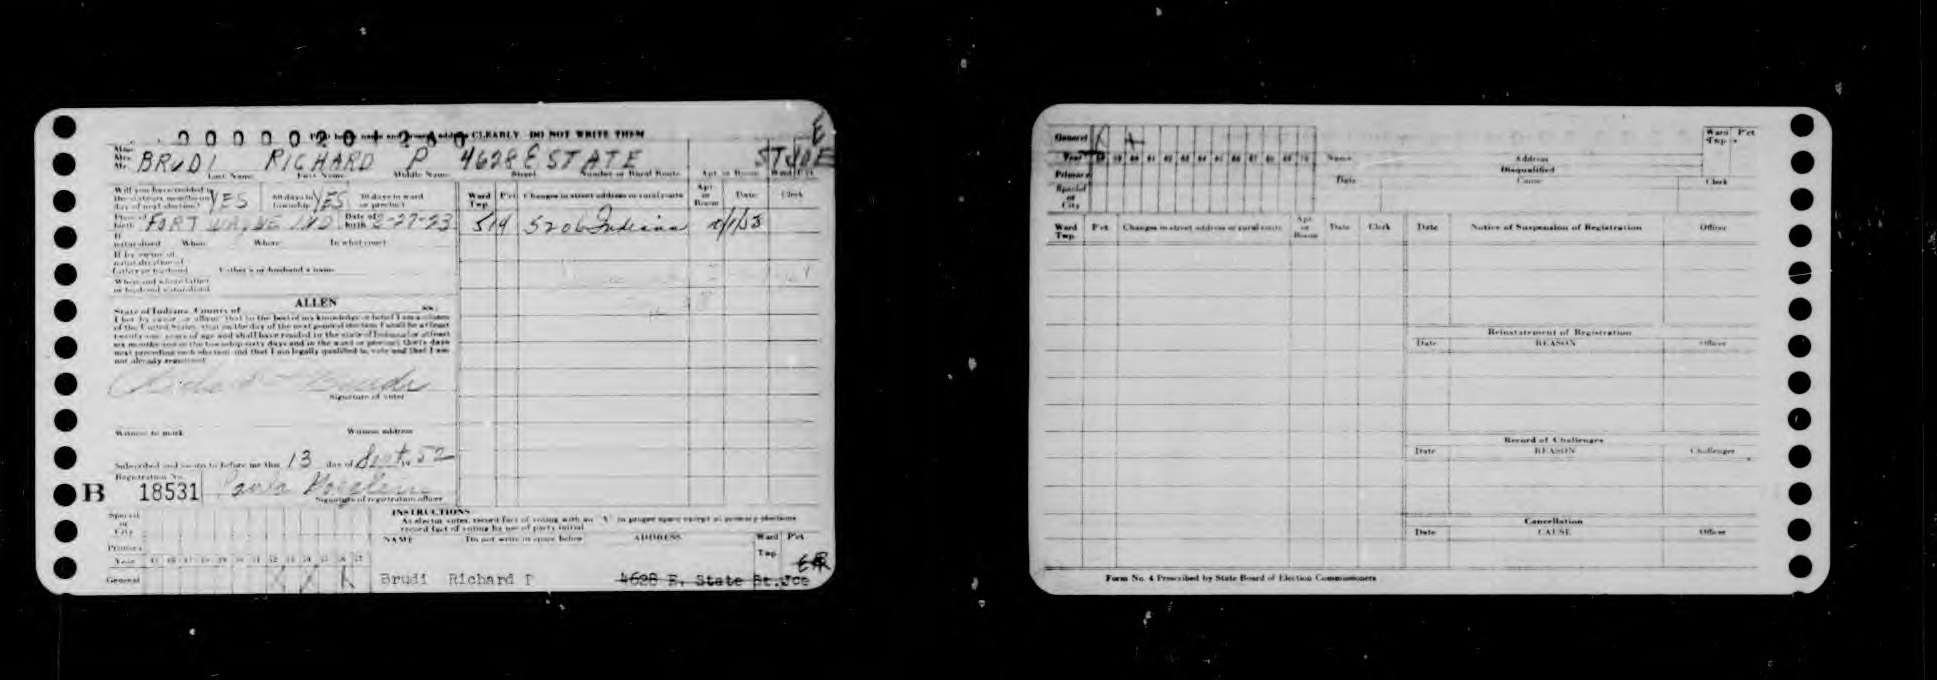 0000020+260
CLEARLY DO NOT WRITE THEM
E
Miss
Mrs.
Mr. BRUDI RICHARD P 4628 E STATE ST JOE
Last Name First Name Middle Name Street Number or Rural Route Apt or Room Ward Pct
Will you have resided in
the state six months on
day of next election? YES 60 days in
township YES 30 days in ward
or precinct
Ward
Twp. Pct Changes in street address or rural route Apt
or
Room Date Clerk
Place of
birth FORT WAYNE IND Date of
birth 2-27-23
514 5206 Indiana 10/1/53
If
naturalized When Where In what court
If by virtue of
naturalization of
father or husband Father's or husband's name
When and where father
or husband naturalized
ALLEN
State of Indiana, County of ss:
I do swear or affirm that to the best of my knowledge or belief I am a citizen
of the United States, that on the day of the next general election I shall be at least
twenty-one years of age and shall have resided in the state of Indiana for at least
six months and in the township sixty days and in the ward or precinct thirty days
next preceding such election and that I am legally qualified to vote and that I am
not already registered.
Richard P Brudi
Signature of voter
Witness to mark Witness address
Subscribed and sworn to before me this 13 day of Sept. 19 52
Registration No.
B 18531 Paula
Signature of registration officer
INSTRUCTIONS
As elector votes, record fact of voting with an "X" in proper space except at primary elections
record fact of voting by use of party initial
Special
or
City
NAME Do not write in space below ADDRESS Ward
Twp. Pct
Primary
Year
General X X X
Brudi Richard P 4628 E. State St.Joe
General X X
Year 58 59 60 61 62 63 64 65 66 67 68 69 70
Primary
Special
or
City
Name Address Ward
Twp. Pct
Disqualified
Date Cause Clerk
Ward
Twp. Pct Changes in street address or rural route Apt
or
Room Date Clerk Date Notice of Suspension of Registration Officer
Reinstatement of Registration
Date REASON Officer
Record of Challenges
Date REASON Challenger
Cancellation
Date CAUSE Officer
Form No. 4 Prescribed by State Board of Election Commissioners